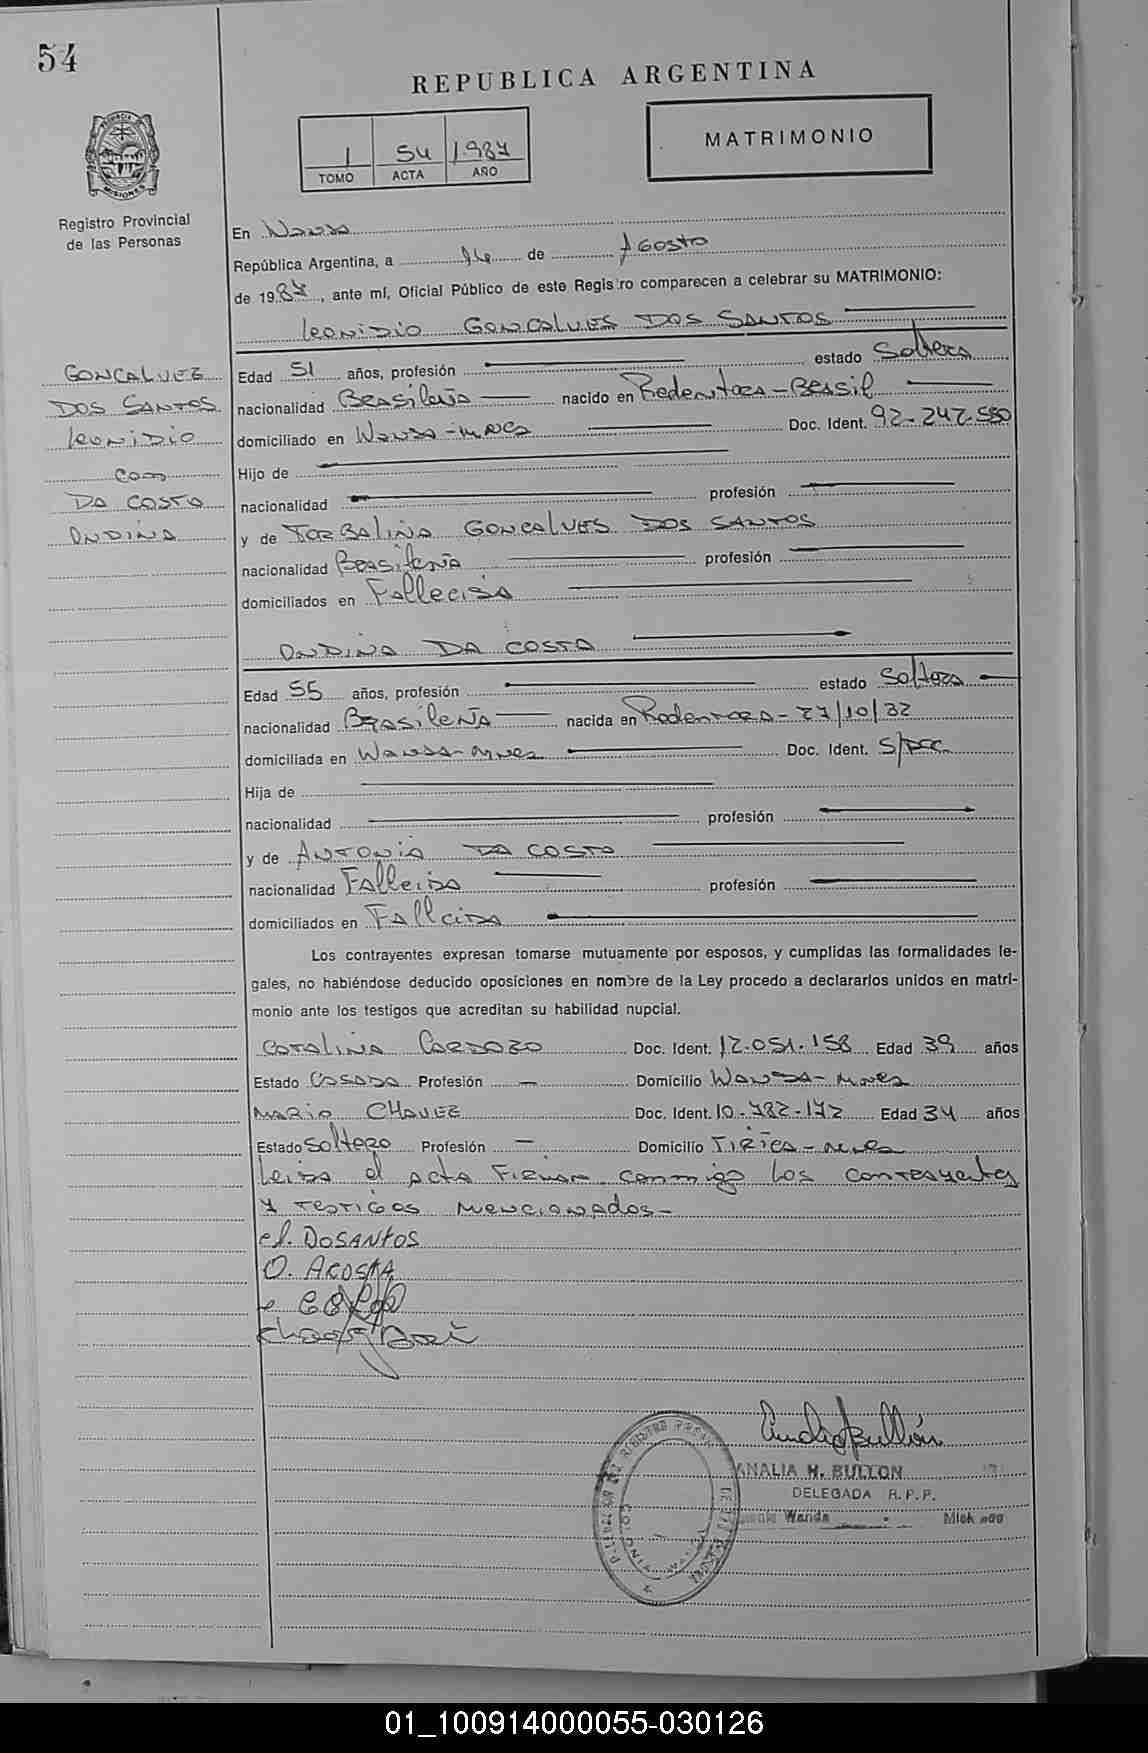 54
REPUBLICA ARGENTINA
1 54 1.987
TOMO ACTA AÑO
MATRIMONIO
Registro Provincial
de las Personas
En Wanda
República Argentina, a 14 de Agosto
de 1987, ante mí, Oficial Público de este Registro comparecen a celebrar su MATRIMONIO:
Leonidio GONCALVES DOS SANTOS
GONCALVEZ
DOS SANTOS
Leonidio
con
DA COSTA
ONDINA
Edad 51 años, profesión estado Soltero
nacionalidad Brasileña nacido en Redentora-Brasil
domiciliado en Wanda-Mnes Doc. Ident. 92-247.550
Hijo de
nacionalidad profesión
y de TORBALINA GONCALVES DOS SANTOS
nacionalidad Brasileña profesión
domiciliados en Fallecida
ONDINA DA COSTA
Edad 55 años, profesión estado Soltera
nacionalidad Brasileña nacida en Redentora-27/10/32
domiciliada en Wanda-Mnes Doc. Ident. S/Doc.
Hija de
nacionalidad profesión
y de ANTONIA DA COSTA
nacionalidad Falleida profesión
domiciliados en Fallcida
Los contrayentes expresan tomarse mutuamente por esposos, y cumplidas las formalidades le-
gales, no habiéndose deducido oposiciones en nombre de la Ley procedo a declararlos unidos en matri-
monio ante los testigos que acreditan su habilidad nupcial.
CATALINA CARDOZO Doc. Ident. 12.051.158 Edad 39 años
Estado Casada Profesión - Domicilio Wanda-Mnes
MARIO CHAVEZ Doc. Ident. 10-782-172 Edad 34 años
Estado Soltero Profesión - Domicilio Tirica-Mnes
Leida el acta Firman conmigo los contrayentes
y testigos mencionados-
el. DOSANTOS
O. ACOSTA
ANALIA H. BULLON
DELEGADA R. P. P.
Wanda
01_100914000055-030126